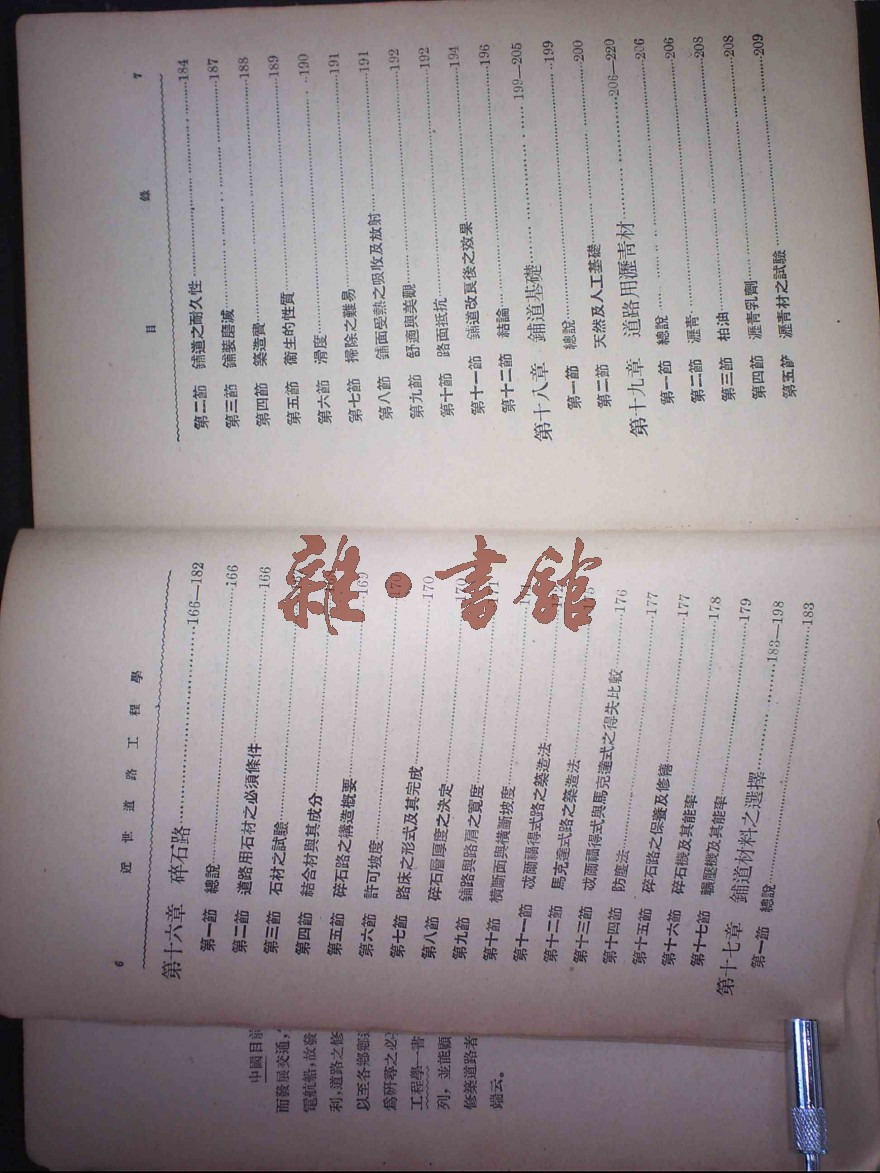 6 近世道路工程學
第十六章 碎石路 166—182
第一節 總說 166
第二節 道路用石材之必須條件 166
第三節 石材之試驗
第四節 結合材與其成分
第五節 碎石路之構造概要 169
第六節 許可坡度 170
第七節 路床之形式及其完成 170
第八節 碎石層厚度之決定 170
第九節 鋪路與路肩之寬度 171
第十節 橫斷面與橫斷坡度
第十一節 忒爾福得式路之築造法
第十二節 馬克達式路之築造法
第十三節 忒爾福得式與馬克達式之得失比較 176
第十四節 防塵法 177
第十五節 碎石路之保養及修繕 177
第十六節 碎石機及其能率 178
第十七節 輾壓機及其能率 179
第十七章 鋪道材料之選擇 183—198
第一節 總說 183
目錄 7
第二節 鋪道之耐久性 184
第三節 鋪裝磨減 187
第四節 築造費 188
第五節 衞生的性質 189
第六節 滑度 190
第七節 掃除之難易 191
第八節 鋪面受熱之吸收及放射 191
第九節 舒適與美觀 192
第十節 路面抵抗 192
第十一節 鋪道改良後之效果 194
第十二節 結論 196
第十八章 鋪道基礎 199—205
第一節 總說 199
第二節 天然及人工基礎 200
第十九章 道路用瀝青材 206—220
第一節 總說 206
第二節 瀝青 206
第三節 柏油 208
第四節 瀝青乳劑 208
第五節 瀝青材之試驗 209
中國目前
而發展交通,
電航船,故發
利,道路之修
以至各鄉鄉
爲研尋之必
工程學一書
列,並能顧
修築道路者
端云。
雜·書館